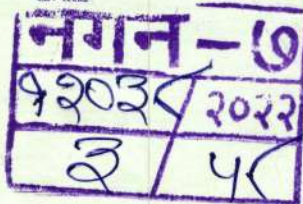 नगन-७
१२०३८/२०२२
३/५८